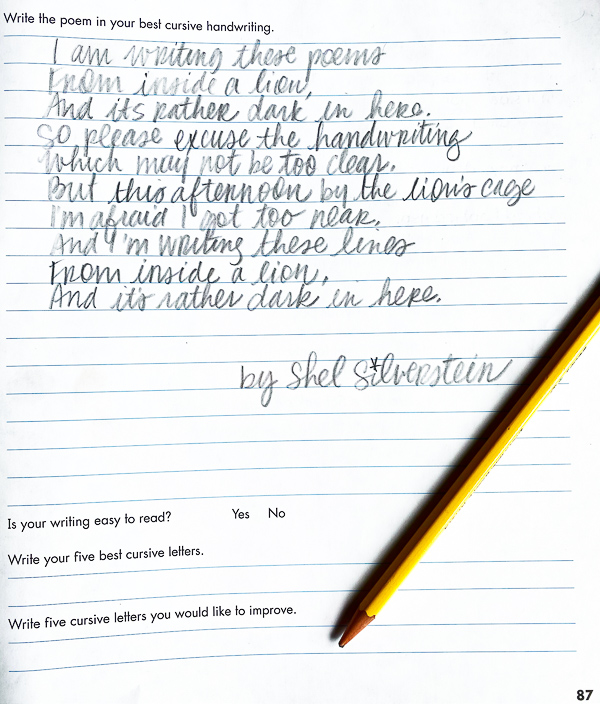 Write the poem in your best cursive handwriting.
I am writing these poems
From inside a lion,
And its rather dark in here.
So please excuse the handwriting
Which may not be too clear.
But this afternoon by the lion's cage
I'm afraid I got too near.
And I'm writing these lines
From inside a lion,
And it's rather dark in here.
by Shel Silverstein
Is your writing easy to read? Yes No
Write your five best cursive letters.
Write five cursive letters you would like to improve.
87